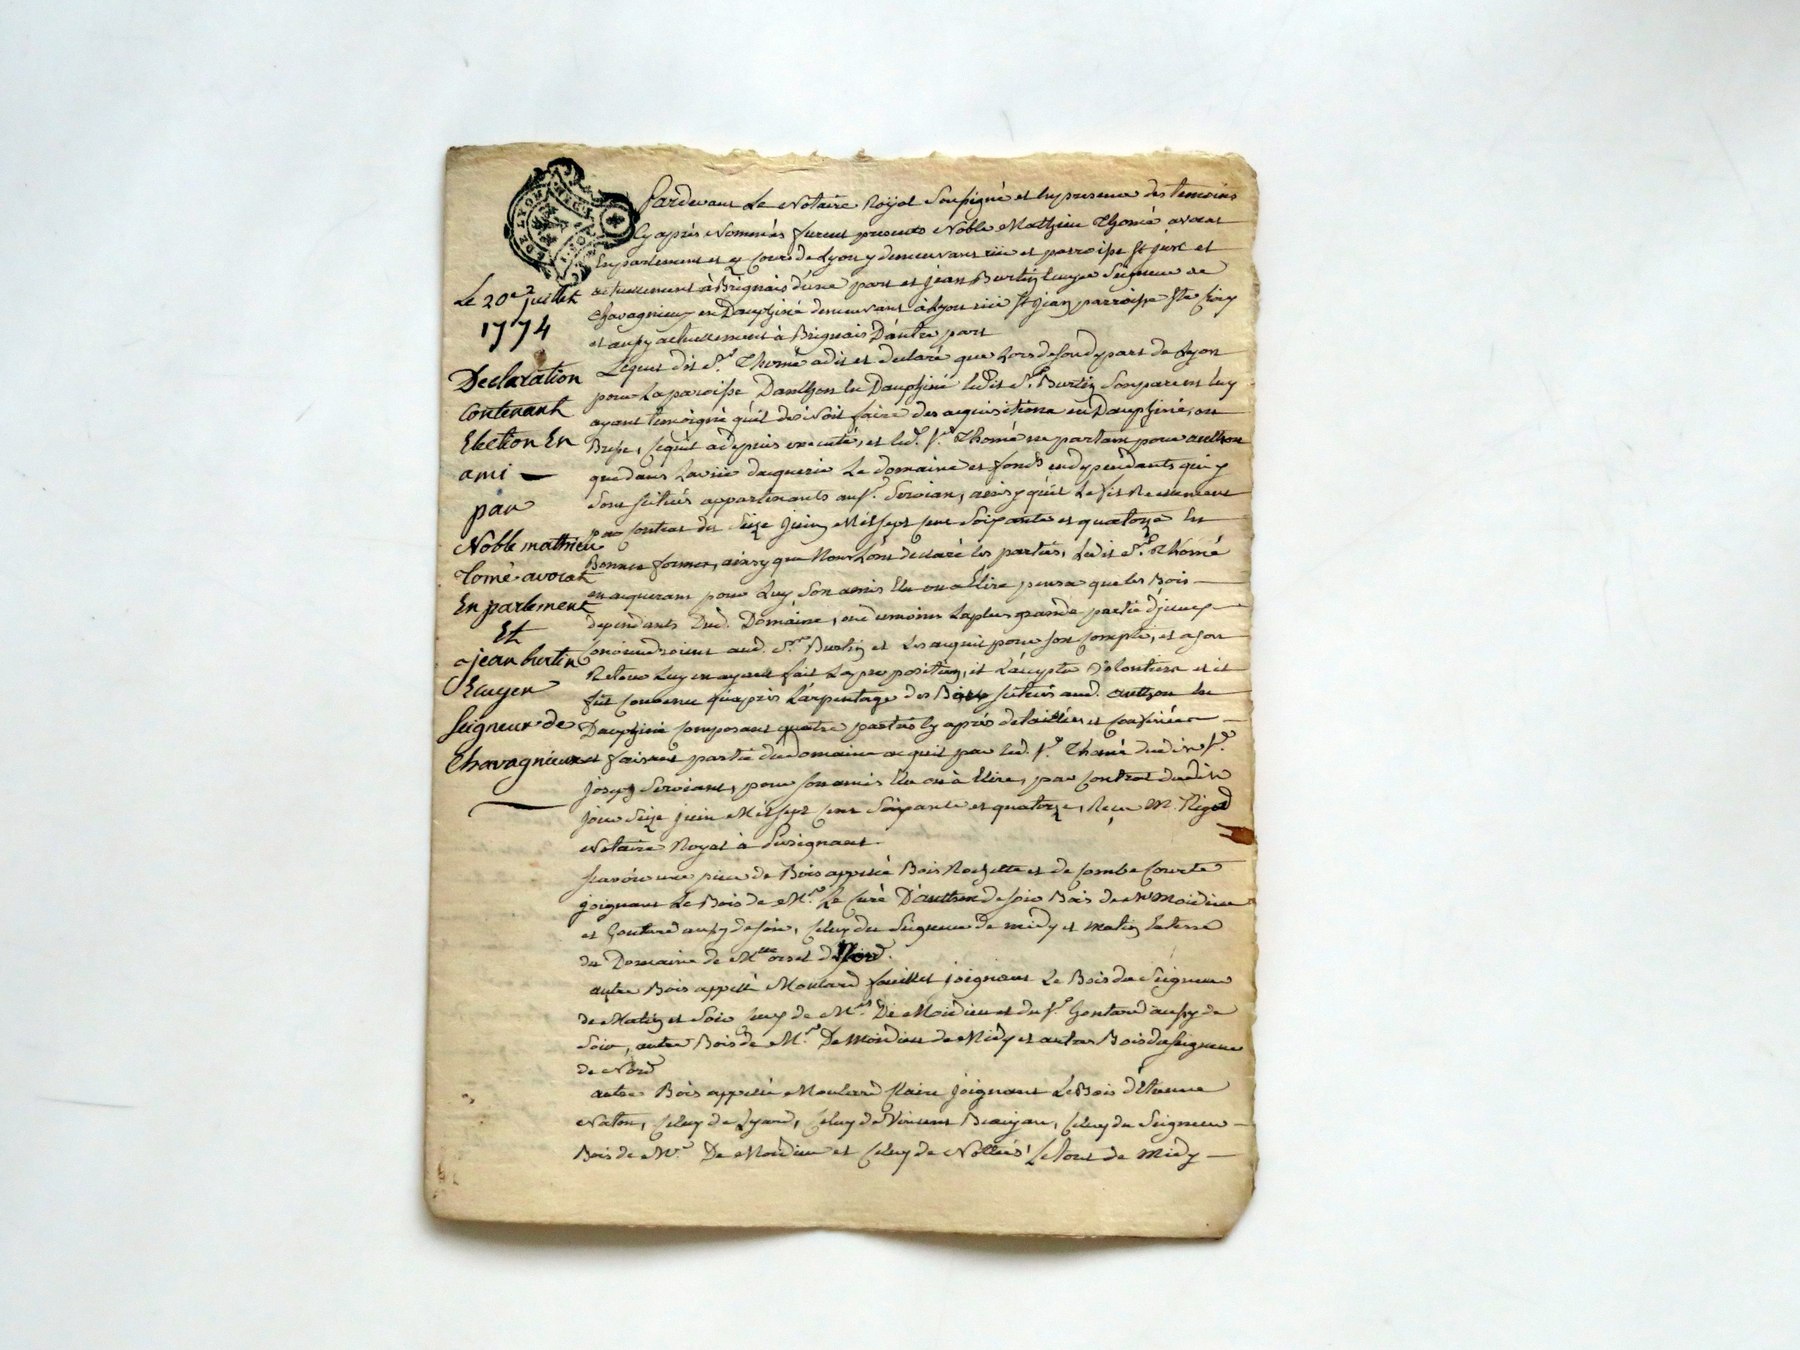 DE LYON
Pardevant Le Notaire Royal Soussigné et En presence des temoins
Cy après Nommés furent presents Noble Mathieu Thomé avocat
En parlement et Cours de Lyon y demeurant rüe et parroisse St just et
actuellement à Brignais d'une part et jean Burtin Ecuyer Seigneur de
Chavagnieux en Dauphiné demeurant à Lyon rüe St jean parroisse Ste Croix
et aussy actuellement à Brignais D'autre part
Lequel dit Sr. Thomé a dit et declaré que Lors de son depart de Lyon
pour La paroisse D'anthon En Dauphiné Ledit Sr. Burtin Son parent Luy
ayant temoigné qu'il desiroit faire des acquisitions en Dauphiné, ou
Bresse, Ce qu'il a depuis executé, et led. Sr. Thomé ne partant pour anthon
que dans La vüe d'acquerir Le domaine et fonds en dependants qui y
Sont scitués appartenants au Sr. Servian, ainsy qu'il Le fit Reellement
par Contrat du Seize juin Mil sept cent Soixante et quatorze En
Bonnes formes, ainsy que Nous L'ont declaré les parties, Ledit Sr. Thomé
en acquerant pour Luy Son amis Elu ou a Elire pensa que les Bois
dependants Dud. Domaine, ou du moins La plus grande partie d'iceux
Conviendroient aud. Sr. Burtin et Les acquit pour son Compte, et a son
Retour Luy en ayant fait La proposition, il L'accepta Volontiers et il
fut Convenu qu'après L'arpentage des Bois scitués aud. anthon En
Dauphiné Composant quatre parties Cy après detaillées et Confinées
et faisant partie du domaine acquit par led. Sr. Thomé dudit Sr.
joseph Servian, pour son amis Elu ou à Elire, par Contrat dudit
jour Seize juin Mil sept Cent Soixante et quatorze, Reçu Me Rigod
Notaire Royal à Pusignant.
Scavoir une piece de Bois appellé Bois Rochette et de Combe Courte
joignant Le Bois de Mr. Le Curé D'anthon de soir Bois de Mr Moidieu
et Gontard aussy de soir, Celuy du Seigneur de midy et matin La terre
du Domaine de Mme orsel de Nord.
autre Bois appellé Moulard feuillet joignant Le Bois du Seigneur
de Matin et Soir Ceux de Mr. De Moidieu et du Sr. Gontard aussy de
Soir, autre Bois de Mr. De Moidieu de Midy et autre Bois du Seigneur
de Nord
autre Bois appellé Moulard Claire joignant Le Bois d'Etienne
Naton, Celuy de Lyard, Celuy de Vincent Beaujan, Celuy du Seigneur
Bois de Mr. De Moidieu et Celuy de Nolliés Le tout de Midy
Le 20e juillet
1774
Declaration
Contenant
Election En
ami
par
Noble mathieu
Tomé avocat
En parlement
Et
a jean burtin
Ecuyer
Seigneur de
Chavagnieux